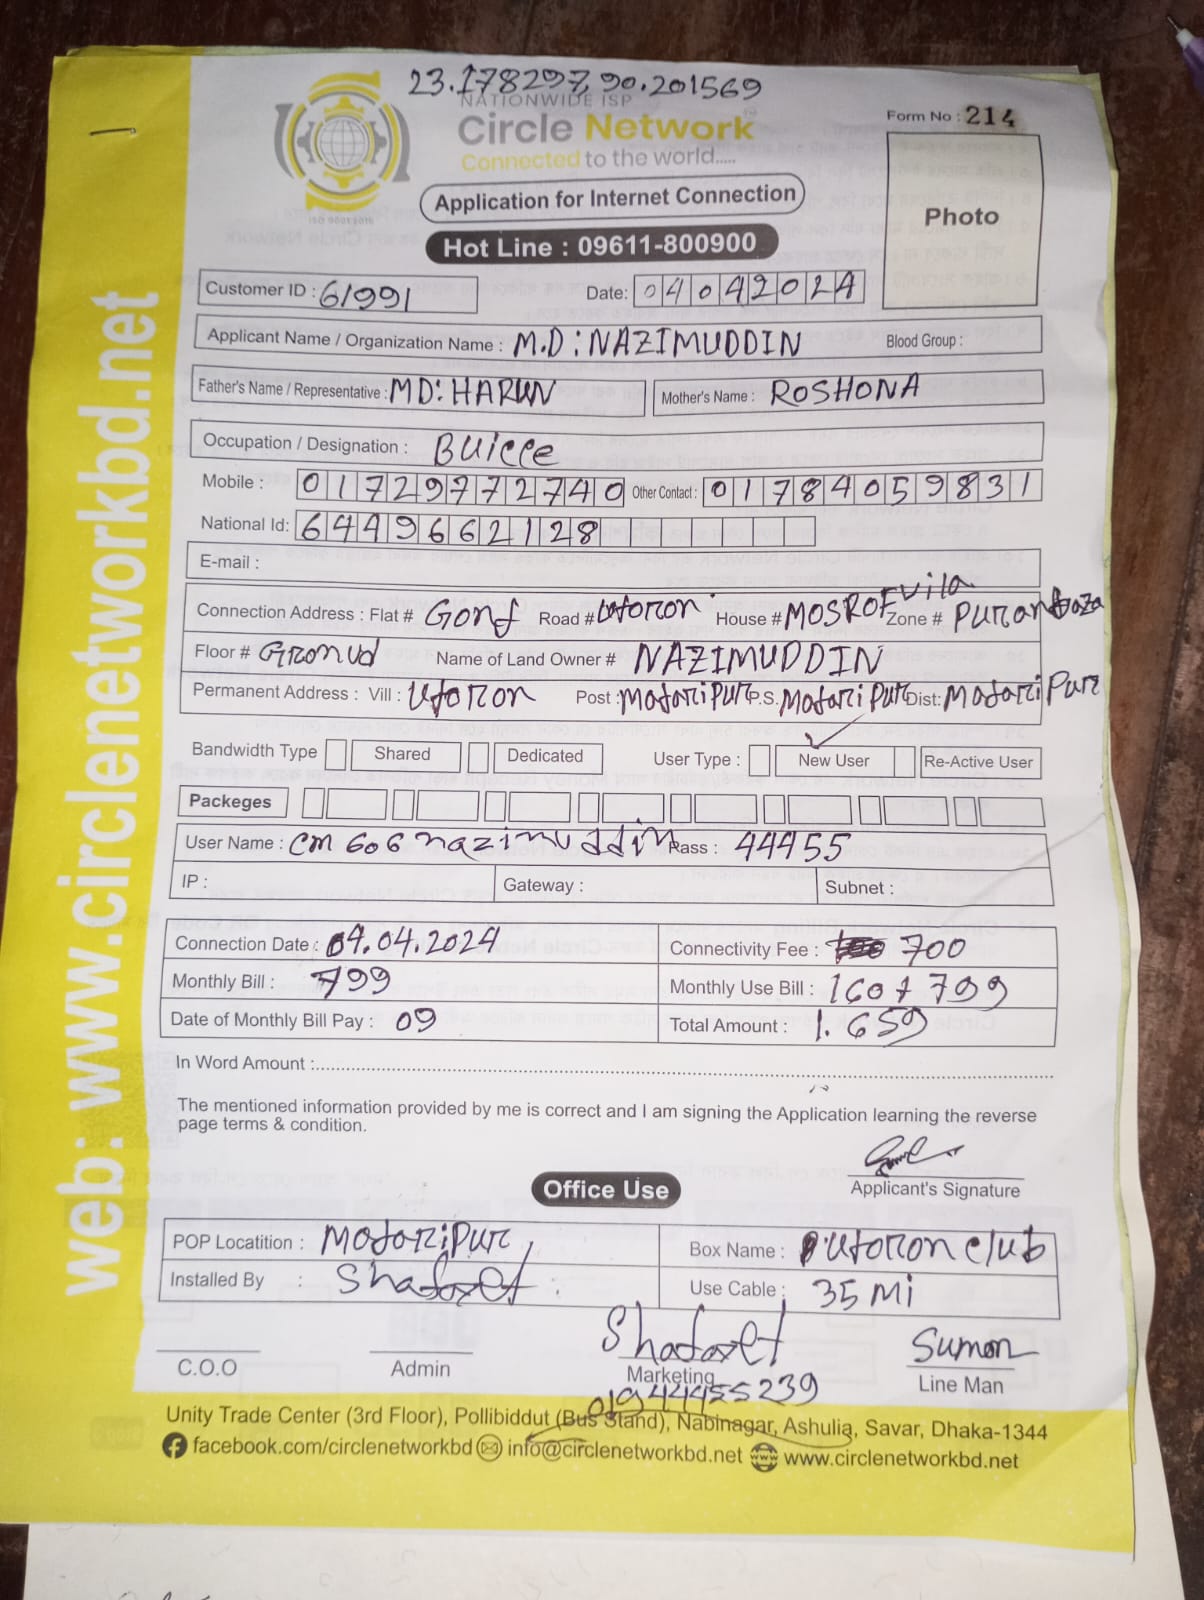 23.178297, 90.201569
NATIONWIDE ISP
Circle Network
Connected to the world.....
Form No : 214
Photo
Application for Internet Connection
Hot Line : 09611-800900
Customer ID : 61991 Date: 04042024
Applicant Name / Organization Name : M.D : NAZIMUDDIN Blood Group :
Father's Name / Representative : MD: HARUN Mother's Name : ROSHONA
Occupation / Designation :
Mobile : 01729772740 Other Contact : 01784059831
National Id: 6449662128
E-mail :
Connection Address : Flat # Road # utoron House # MOSROF vila Zone # PURan
Floor # Gronud Name of Land Owner # NAZIMUDDIN
Permanent Address : Vill : Utoron Post : MadariPur P.S. MadariPur Dist: MadariPur
Bandwidth Type Shared Dedicated User Type : New User Re-Active User
Packeges
User Name : cm 606 nazimuddin Pass : 44455
IP : Gateway : Subnet :
Connection Date : 04.04.2024 Connectivity Fee : 700
Monthly Bill : 799 Monthly Use Bill : 160 + 799
Date of Monthly Bill Pay : 09 Total Amount : 1.659
In Word Amount :
The mentioned information provided by me is correct and I am signing the Application learning the reverse
page terms & condition.
Applicant's Signature
Office Use
POP Locatition : MadariPur Box Name : utoron club
Installed By : Use Cable : 35 Mi
Sumon
C.O.O Admin Marketing Line Man
01944455239
Unity Trade Center (3rd Floor), Pollibiddut (Bus Stand), Nabinagar, Ashulia, Savar, Dhaka-1344
facebook.com/circlenetworkbd info@circlenetworkbd.net www.circlenetworkbd.net
web: www.circlenetworkbd.net